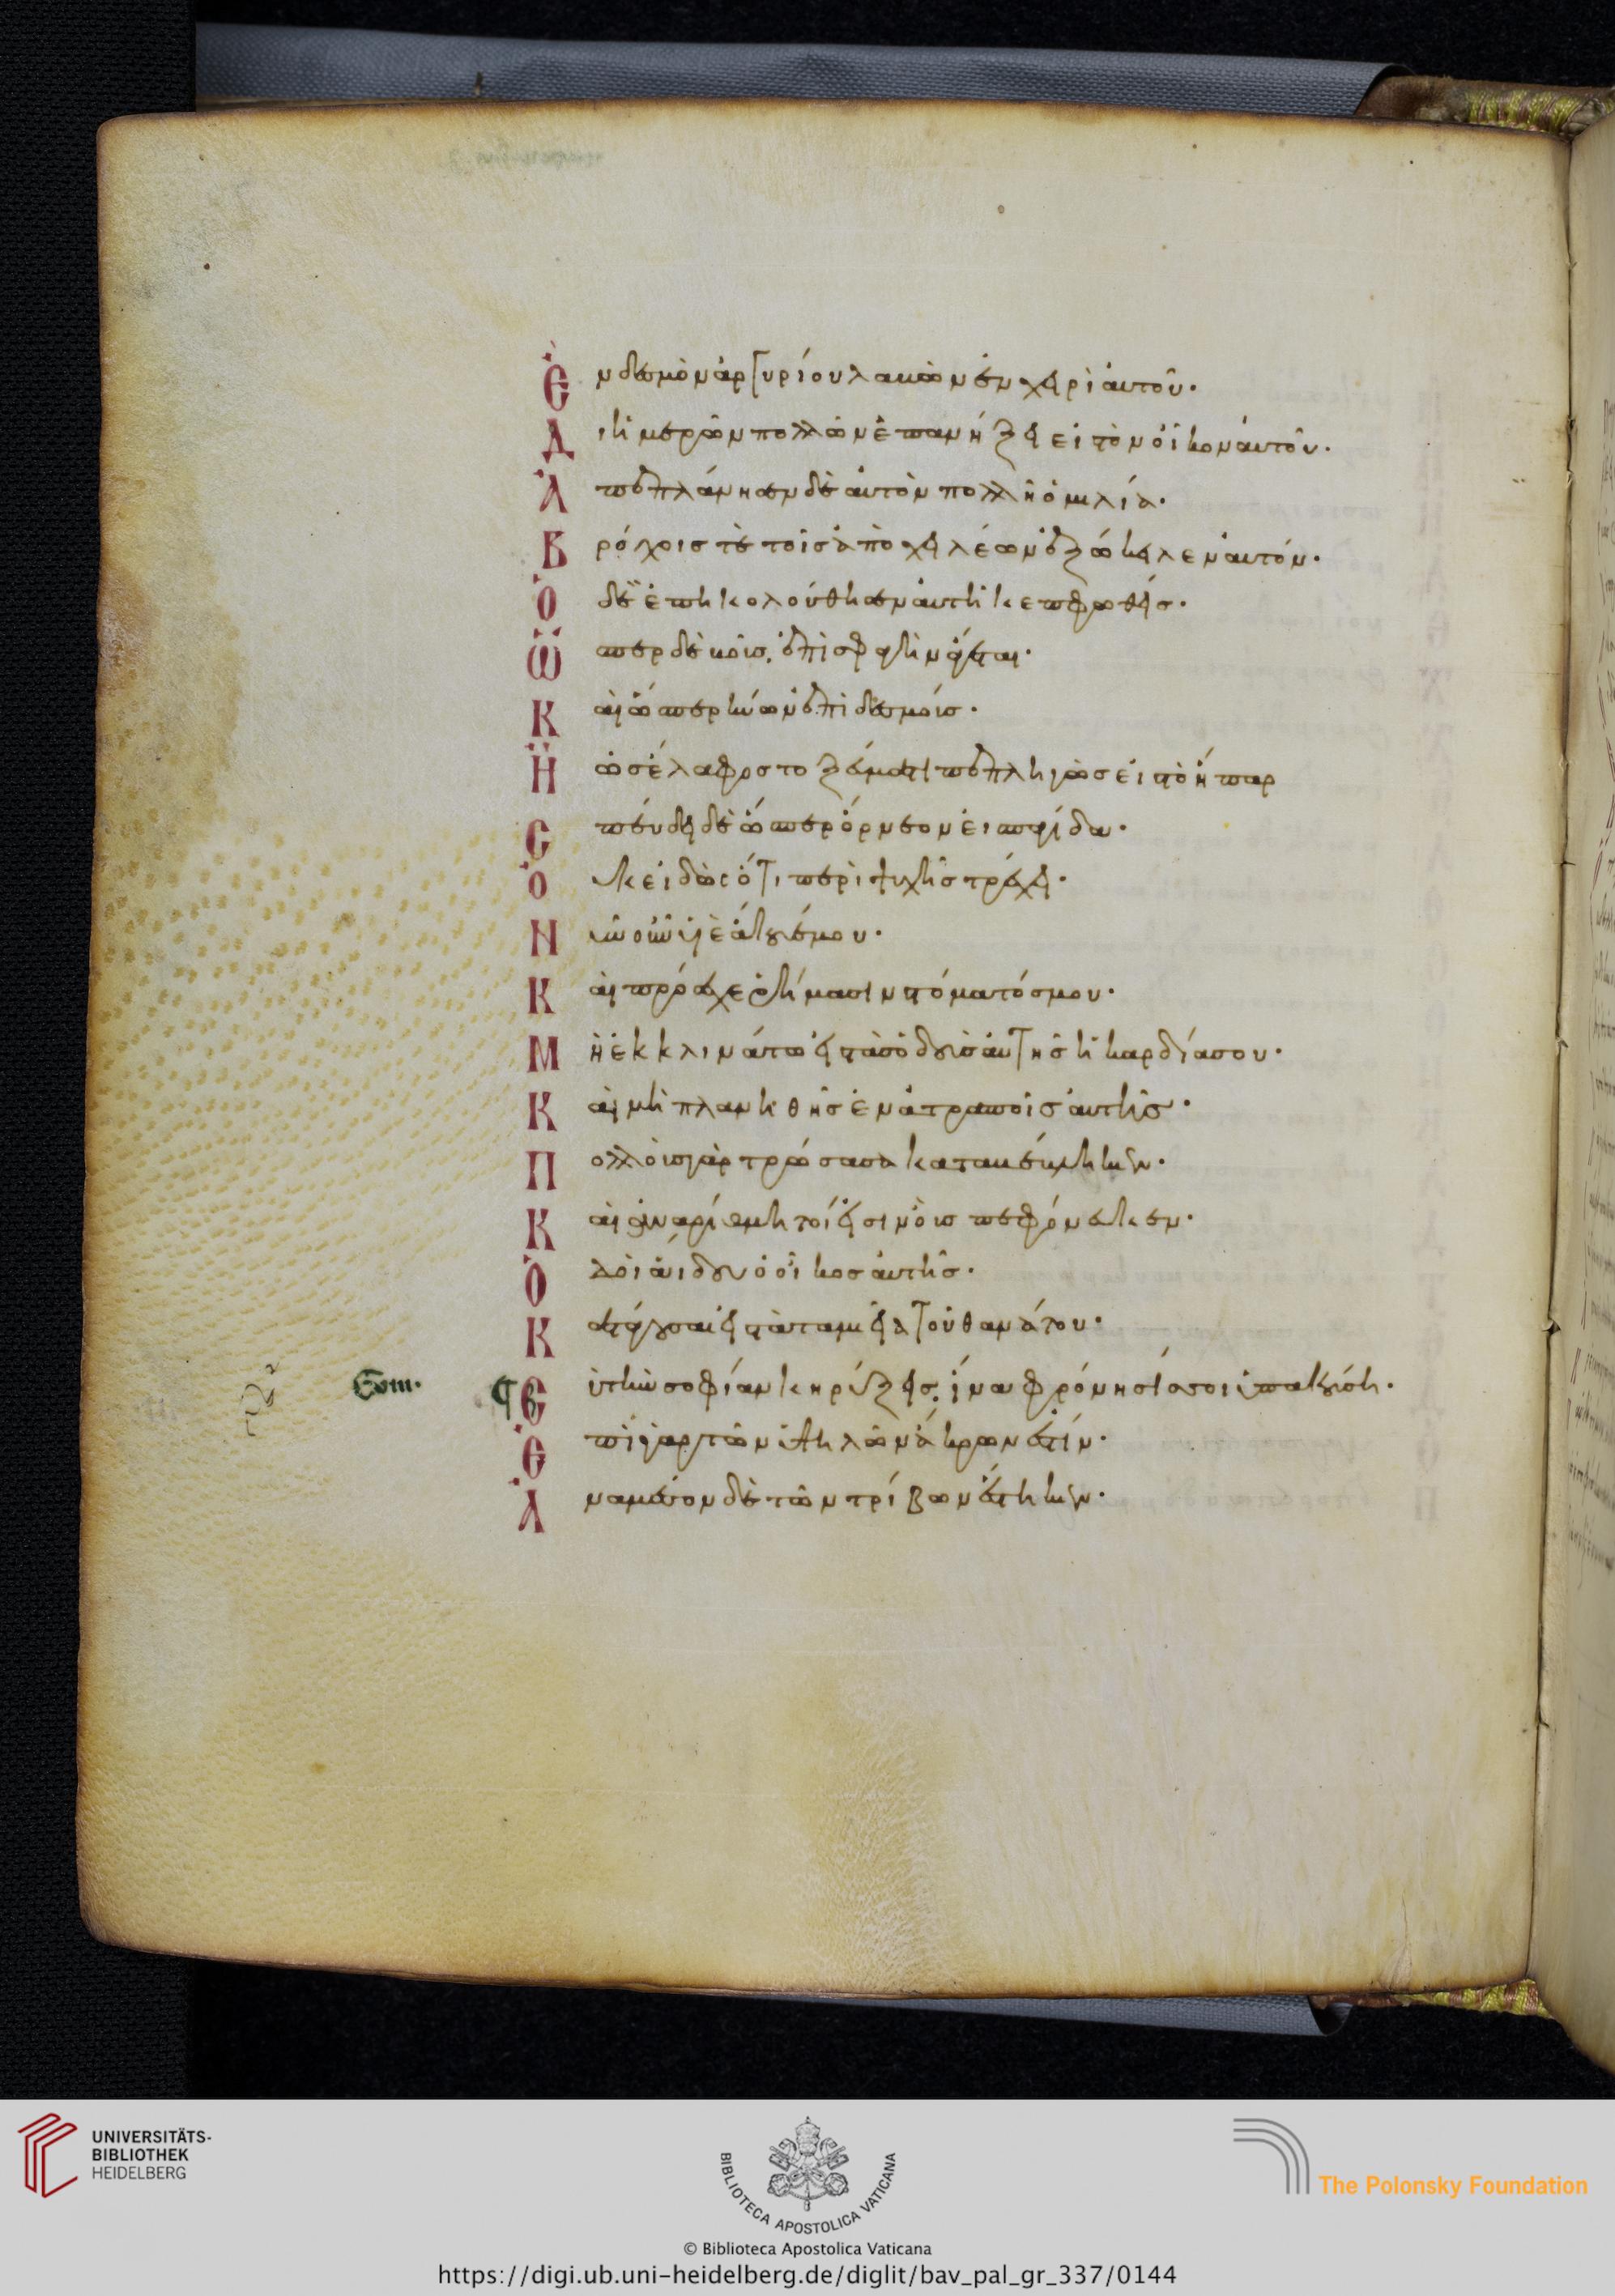 Ἔνδεσμον ἀργυρίου λαβὼν ἐν χειρὶ αὐτοῦ·
Δι ἡμερῶν πολλῶν ἐπανήξει εἰς τὸν οἶκον αὐτοῦ·
Ἀπεπλάνησεν δὲ αὐτὸν πολλῆ ὁμιλία·
Βρόχοις τε τοῖς ἀπὸ χειλέων ἐξώκειλεν αὐτόν·
Ὁ δὲ ἐπηκολούθησεν αὐτῆ κεπφωθείς·
Ὥσπερ δὲ βοῦς ἐπὶ σφαγὴν ἄγεται·
Καὶ ὥσπερ κύων ἐπὶ δεσμούς·
Ἢ ὡς ἔλαφος τοξεύματι πεπληγὼς εἰς τὸ ἧπαρ
Σπεύδει δὲ ὥσπερ ὄρνεον εἰς παγίδα·
Οὐκ εἰδὼς ὅτι περὶ ψυχῆς τρέχει·
Νῦν οὖν υἱὲ ἄκουέ μου·
Καὶ πρόσεχε ῥήμασιν στόματός μου·
Μὴ ἐκκλινάτω εἰς τὰς ὁδοὺς αὐτῆς ἡ καρδία σου·
Καὶ μὴ πλανηθῆς ἐν ἀτραποῖς αὐτῆς·
Πολλοὺς γὰρ τρώσασα καταβέβληκεν·
Καὶ ἀναρίθμητοί εἰσιν οὓς πεφόνευκεν·
Ὁδοὶ ἅιδου ὁ οἶκος αὐτῆς·
Κατάγουσαι εἰς τὰ ταμιεῖα τοῦ θανάτου·
Σὺ τὴν σοφίαν κηρύξεις, ἵνα φρόνησίς σοι ὑπακούση·
Ἐπὶ γὰρ τῶν ὑψηλῶν ἄκρων ἐστίν·
Ἀναμέσον δὲ τῶν τρίβων ἕστηκεν·
UNIVERSITÄTS-
BIBLIOTHEK
HEIDELBERG
BIBLIOTECA APOSTOLICA VATICANA
The Polonsky Foundation
© Biblioteca Apostolica Vaticana
https://digi.ub.uni-heidelberg.de/diglit/bav_pal_gr_337/0144